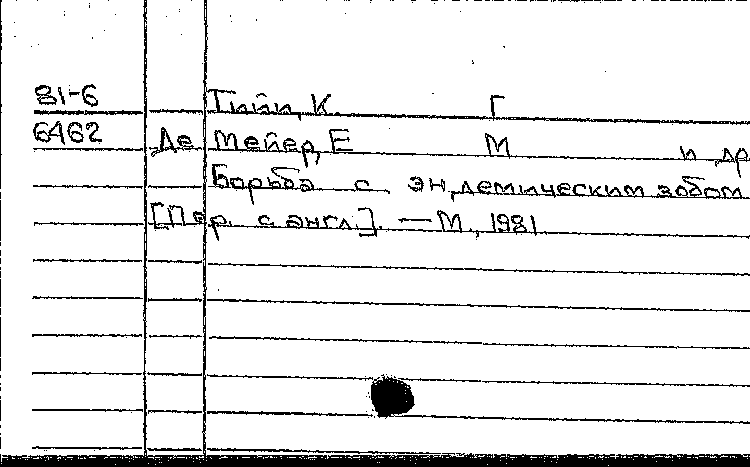 81-6 Тийи, К. Г
6462 Де Мейер, Е М и др
Борьба с эндемическим зобом
[Пер. с англ.]. — М., 1981